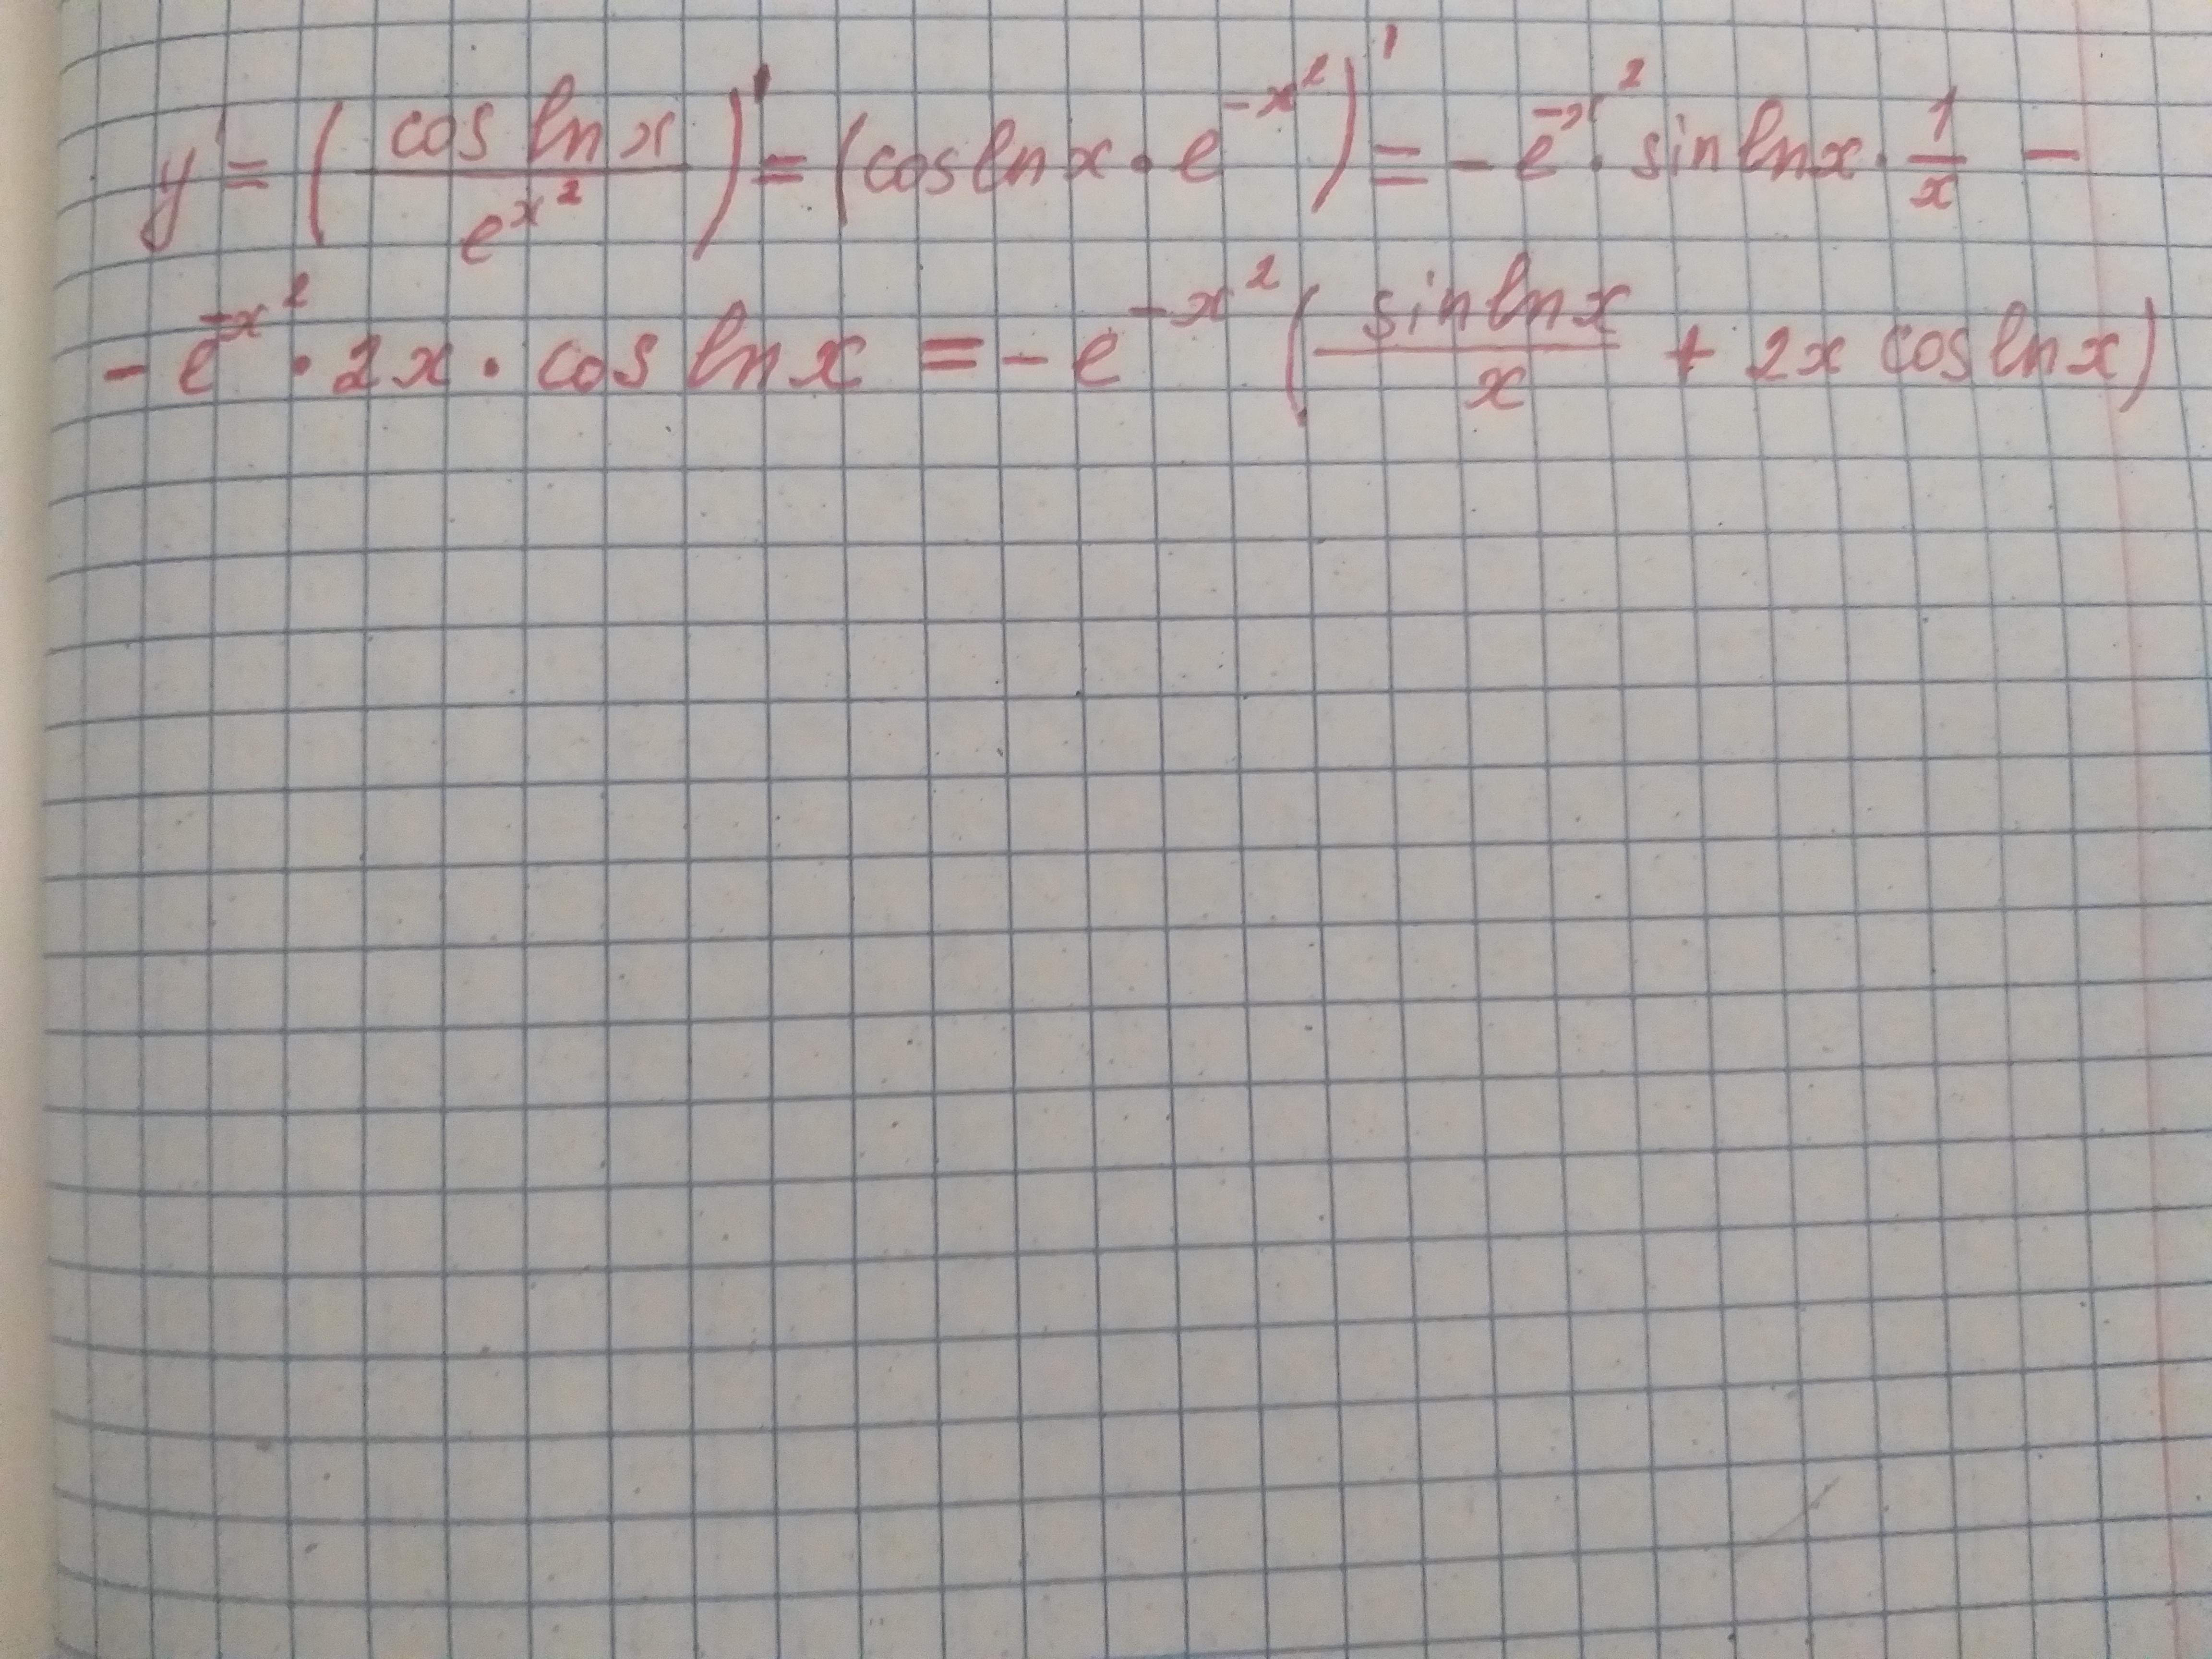 y' = (cos ln x / e^{x^2})' = (cos ln x · e^{-x^2})' = - e^{-x^2} · sin ln x · 1/x -
- e^{-x^2} · 2x · cos ln x = - e^{-x^2} (sin ln x / x + 2x cos ln x)